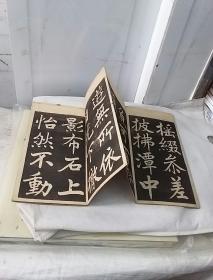 搖綴参差
披拂潭中
遊無所依
影布石上
怡然不動